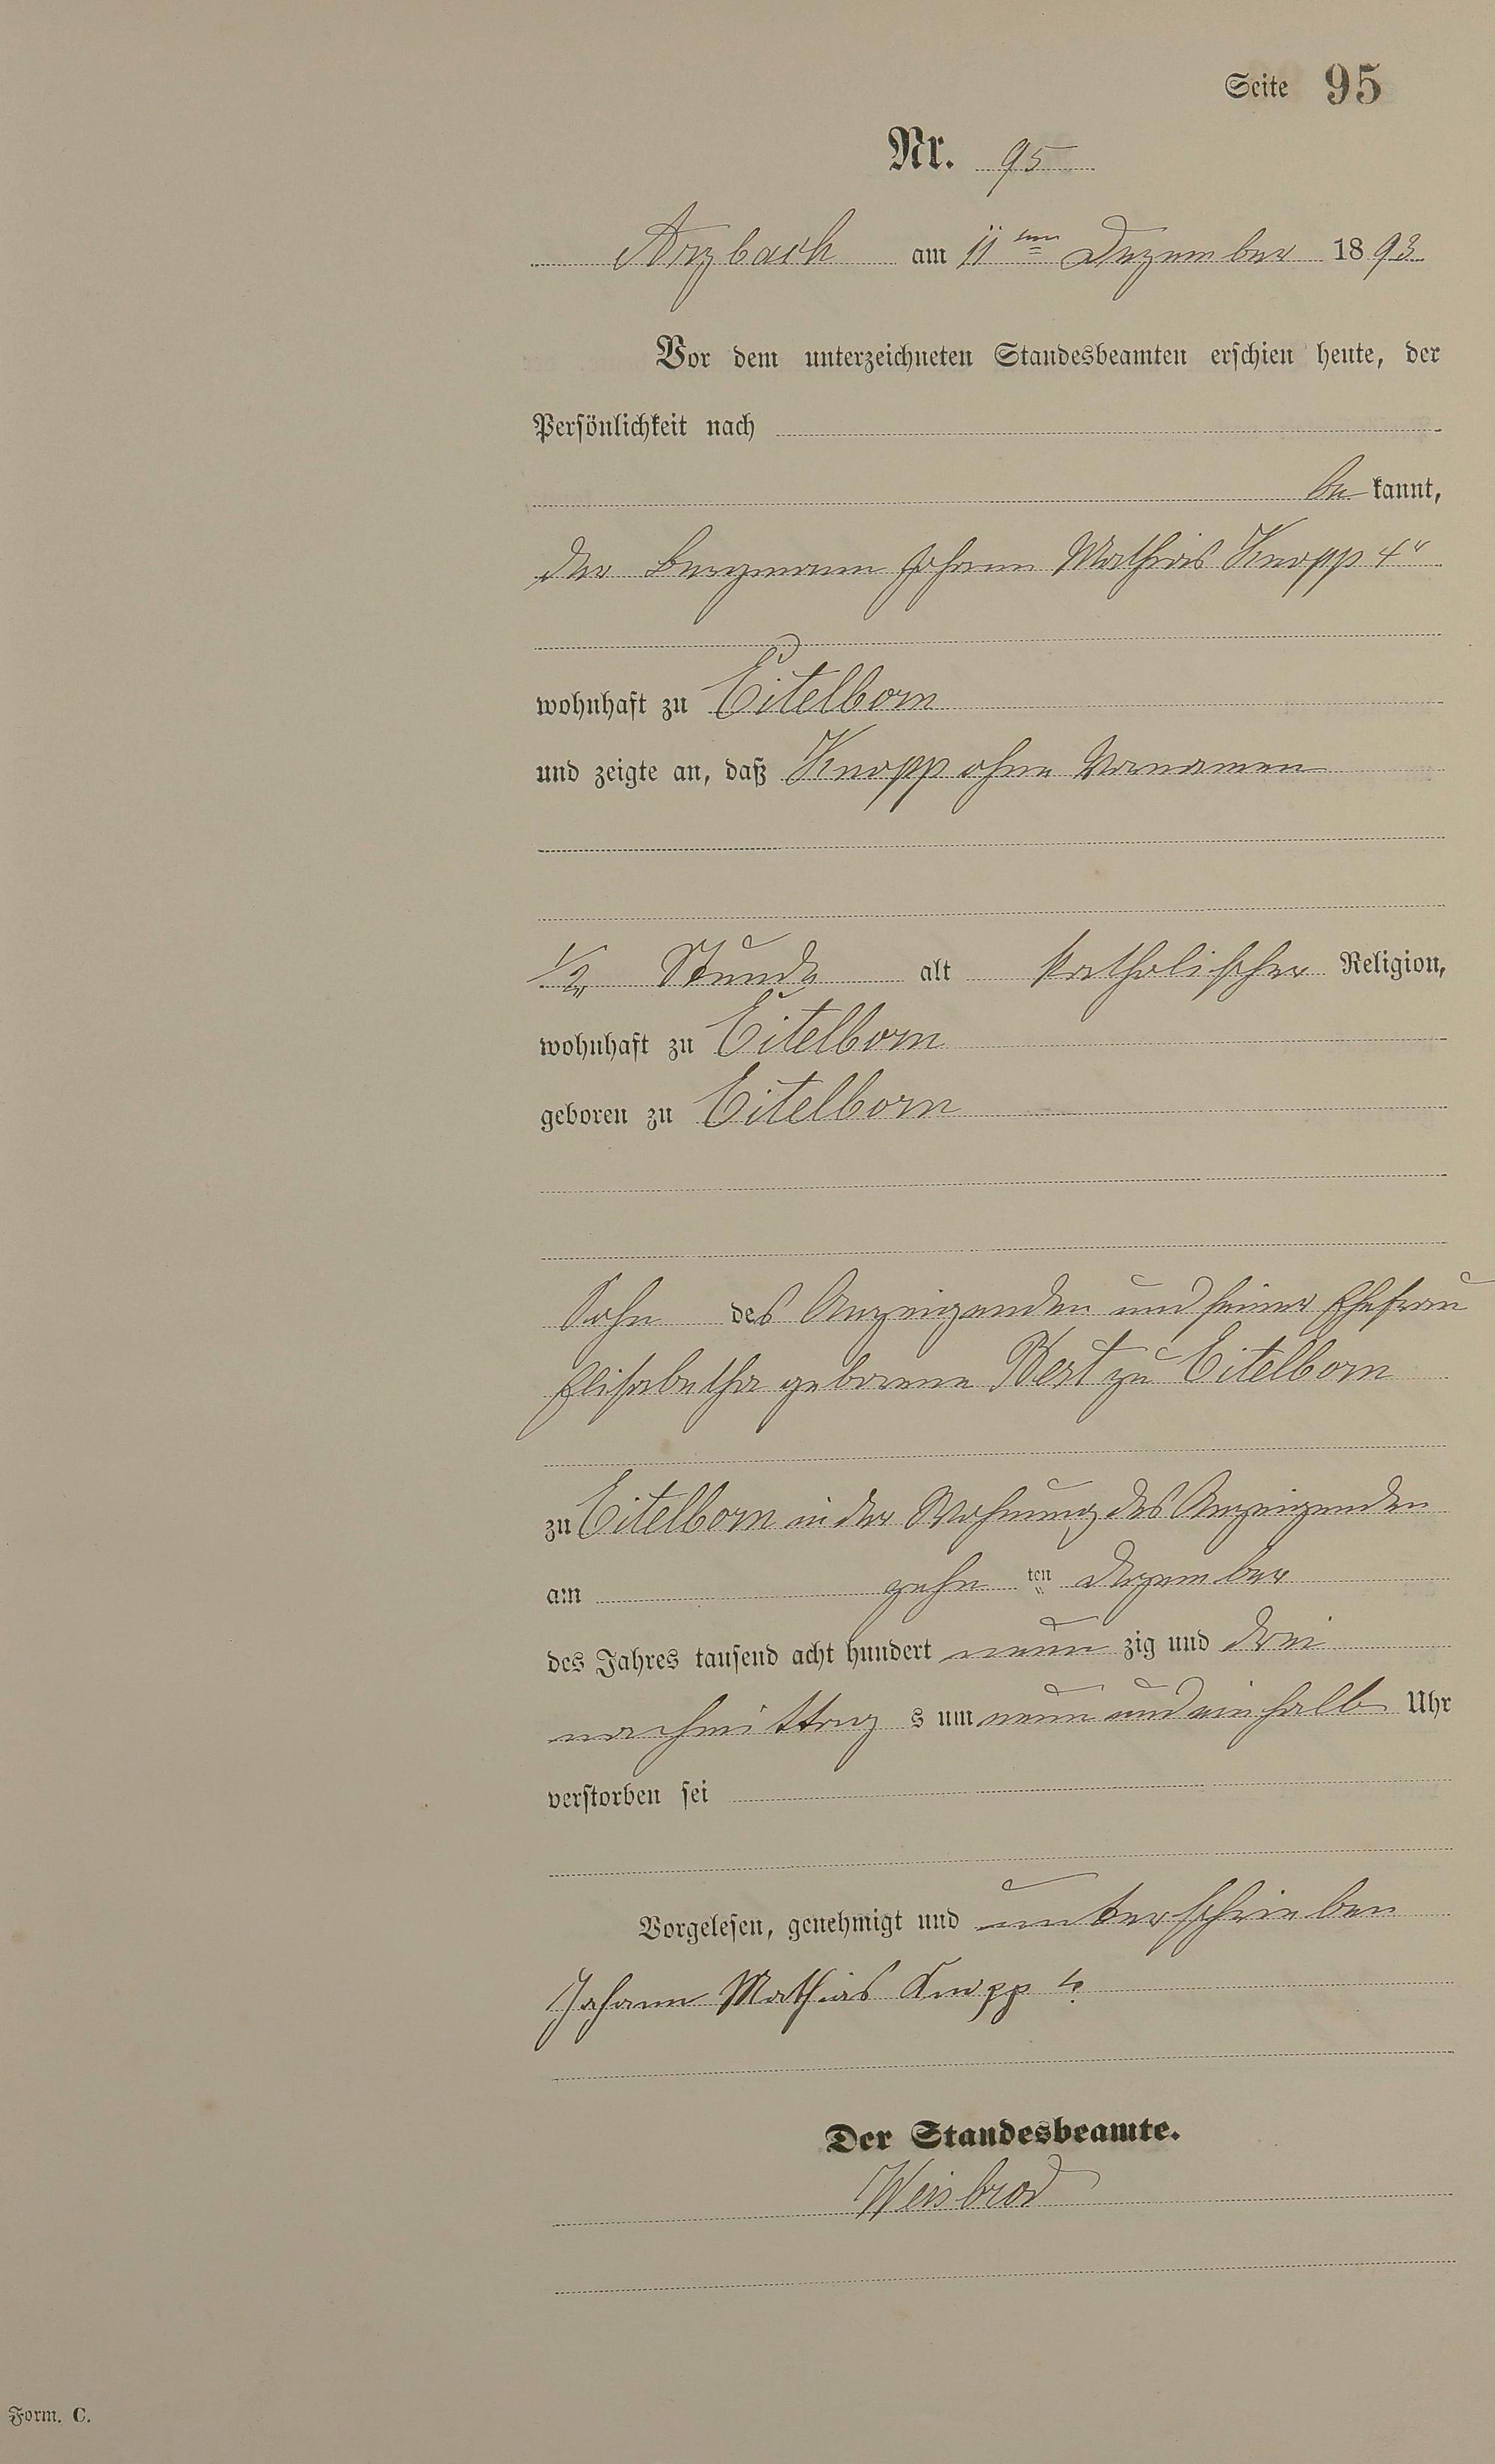 Seite 95
Nr. 95
Arzbach am 11ten Dezember 1893
Vor dem unterzeichneten Standesbeamten erschien heute, der
Persönlichkeit nach
be kannt,
der Bergmann Johann Mathias Knopp 4r
wohnhaft zu Eitelborn
und zeigte an, daß Knopp ohne Vornamen
1/2 Stunde alt katholischer Religion,
wohnhaft zu Eitelborn
geboren zu Eitelborn
Sohn des Anzeigenden und seiner Ehefrau
Elisabetha geborene Best zu Eitelborn
zu Eitelborn in der Wohnung des Anzeigenden
am zehn ten Dezember
des Jahres tausend acht hundert neun zig und drei
nachmittag s um neun und einhalb Uhr
verstorben sei
Vorgelesen, genehmigt und unterschrieben
Johann Mathias Knopp 4.
Der Standesbeamte.
Weisbrod
Form. C.